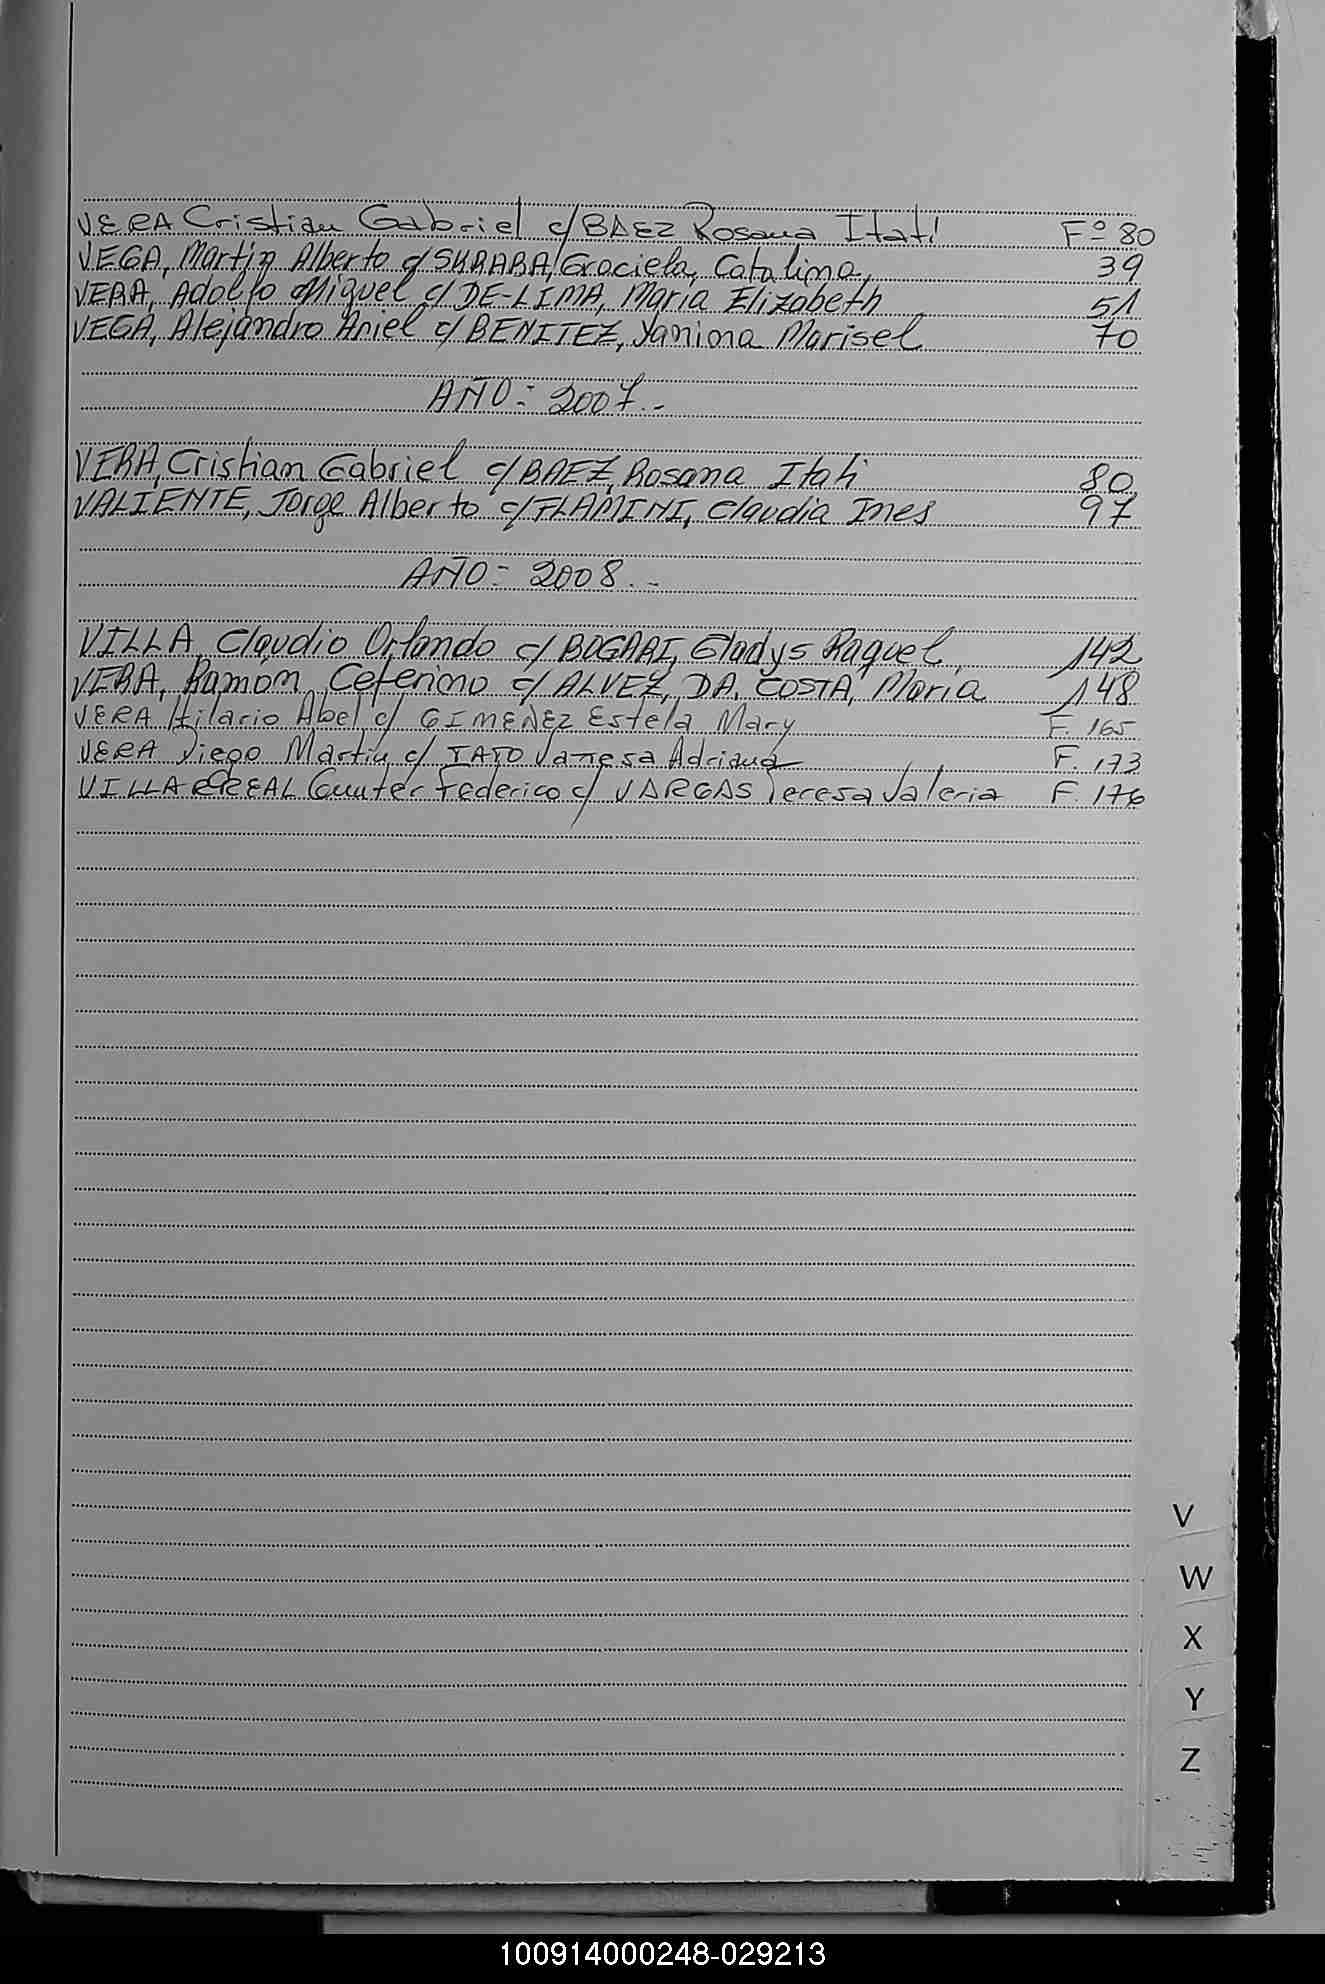 VERA Cristian Gabriel c/ BAEZ Rosana Itatí Fº 80
VEGA, Martin Alberto c/ SUBABA, Graciela, Catalina, 39
VERA, Adolfo Miguel c/ DE-LIMA, Maria Elizabeth 51
VEGA, Alejandro Ariel c/ BENITEZ, Yanina Marisel 70
AÑO: 2007.-
VERA, Cristian Gabriel c/ BAEZ, Rosana Itati 80
VALIENTE, Jorge Alberto c/ FLAMINI, Claudia Ines 97
AÑO: 2008.-
VILLA, Claudio Orlando c/ BOGARI, Gladys Raquel, 142
VERA, Ramon, Ceferino c/ ALVEZ, DA, COSTA, Maria 148
VERA Hilario Abel c/ GIMENEZ Estela Mary F. 165
VERA Diego Martin c/ TATO Vanesa Adriana F. 173
VILLARREAL Gunter Federico c/ VARGAS Teresa Valeria F. 176
V
W
X
Y
Z
100914000248-029213